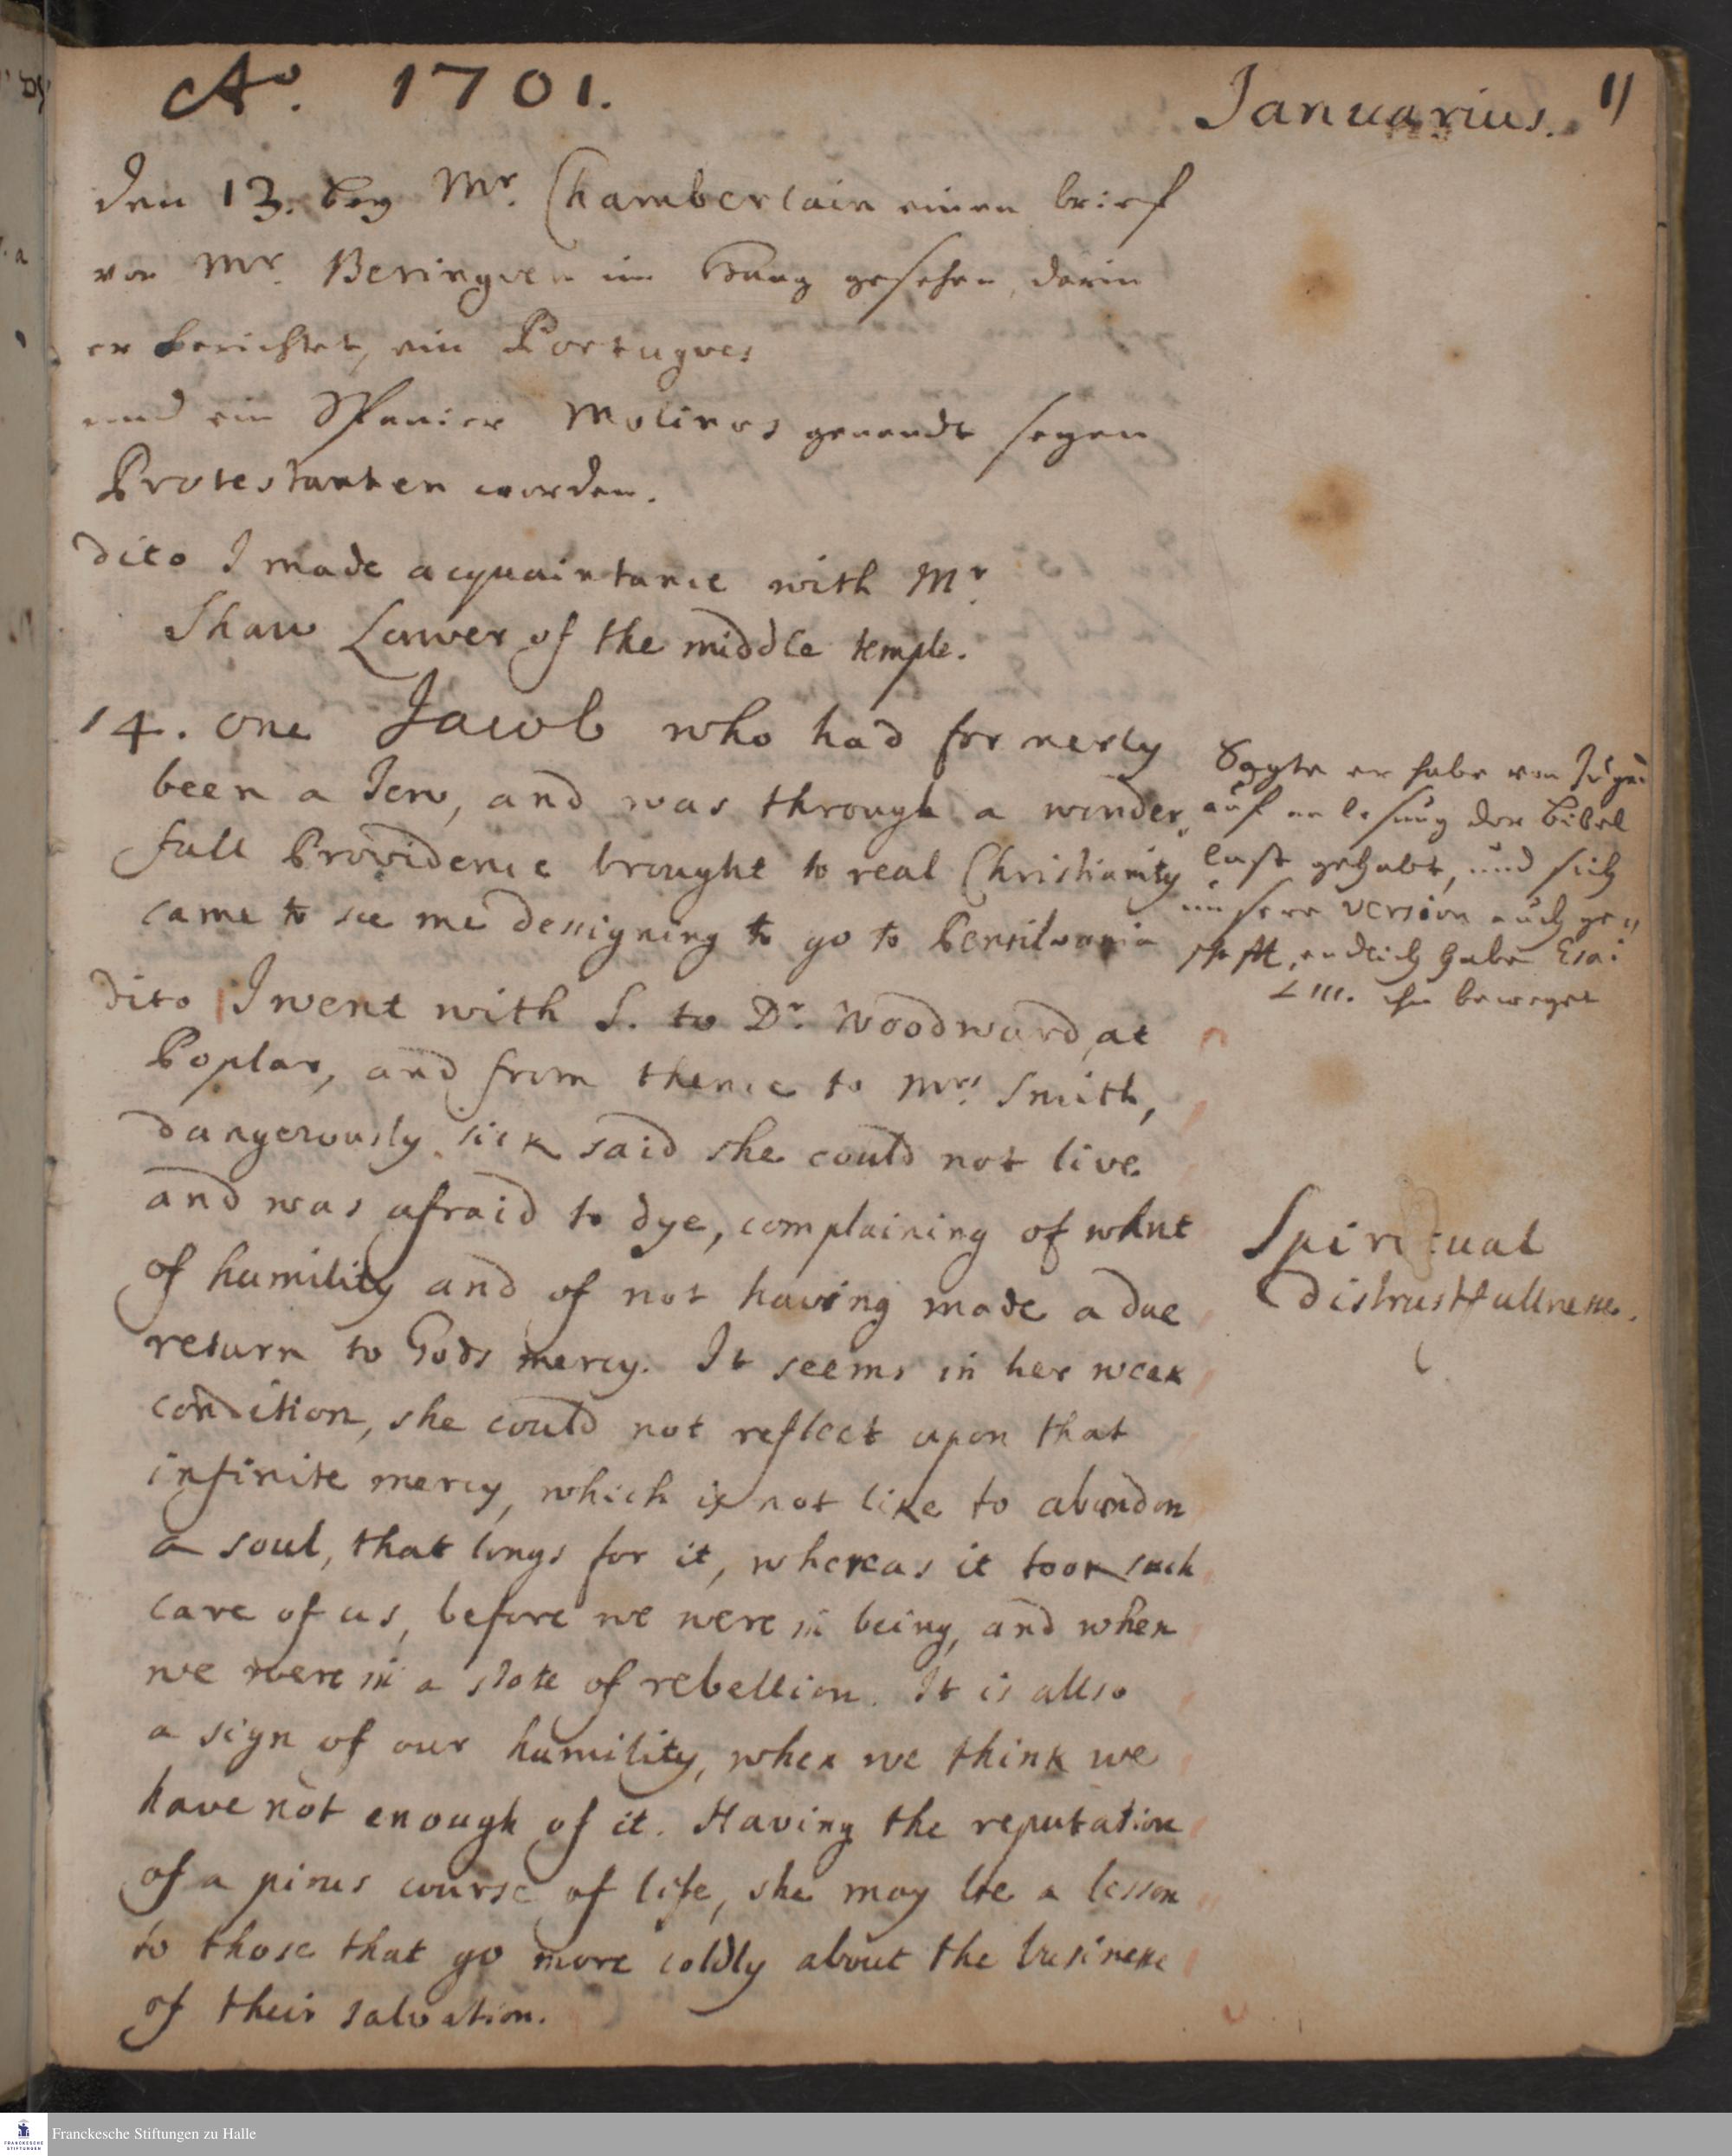 Ao. 1701.
Januarius. 11
den 13. bey Mr. Chamberlain einen brief
von Mr. Beringuen im Haag gesehen, darin
er berichtet, ein Portugues
und ein Spanier Molinos genandt seyen
Protestanten worden.
dito I made acquaintance with Mr.
Shaw Lawer of the middle temple.
14. one Jacob who had formerly
been a Jew, and was through a wonder,
full Providence brought to real Christianity
came to see me designing to go to Pensilvania
Sagte er habe von Jugend
auf an lesung der Bibel
lust gehabt, und sich
unsere version auch ge,,
schafft, endlich habe Esai
LIII. ihn beweget
dito I went with S. to Dr. Woodward at
Poplar, and from thence to Mrs. Smith,
dangerously sick said she could not live
and was afraid to dye, complaining of whnt
of humility and of not having made a due
return to Gods mercy. It seems in her weak
condition, she could not reflect upon that
infinite mercy, which is not like to abandon
a soul, that longs for it, whereas it took such
care of us, before we were in being, and when
we were in a state of rebellion. It is allso
a sign of our humility, when we think we
have not enough of it. Having the reputation
of a pious course of life, she may be a lesson
to those that go more coldly about the businesse
of their salvation.
Spiritual
distrustfullnesse.
Franckesche Stiftungen zu Halle
FRANCKESCHE
STIFTUNGEN